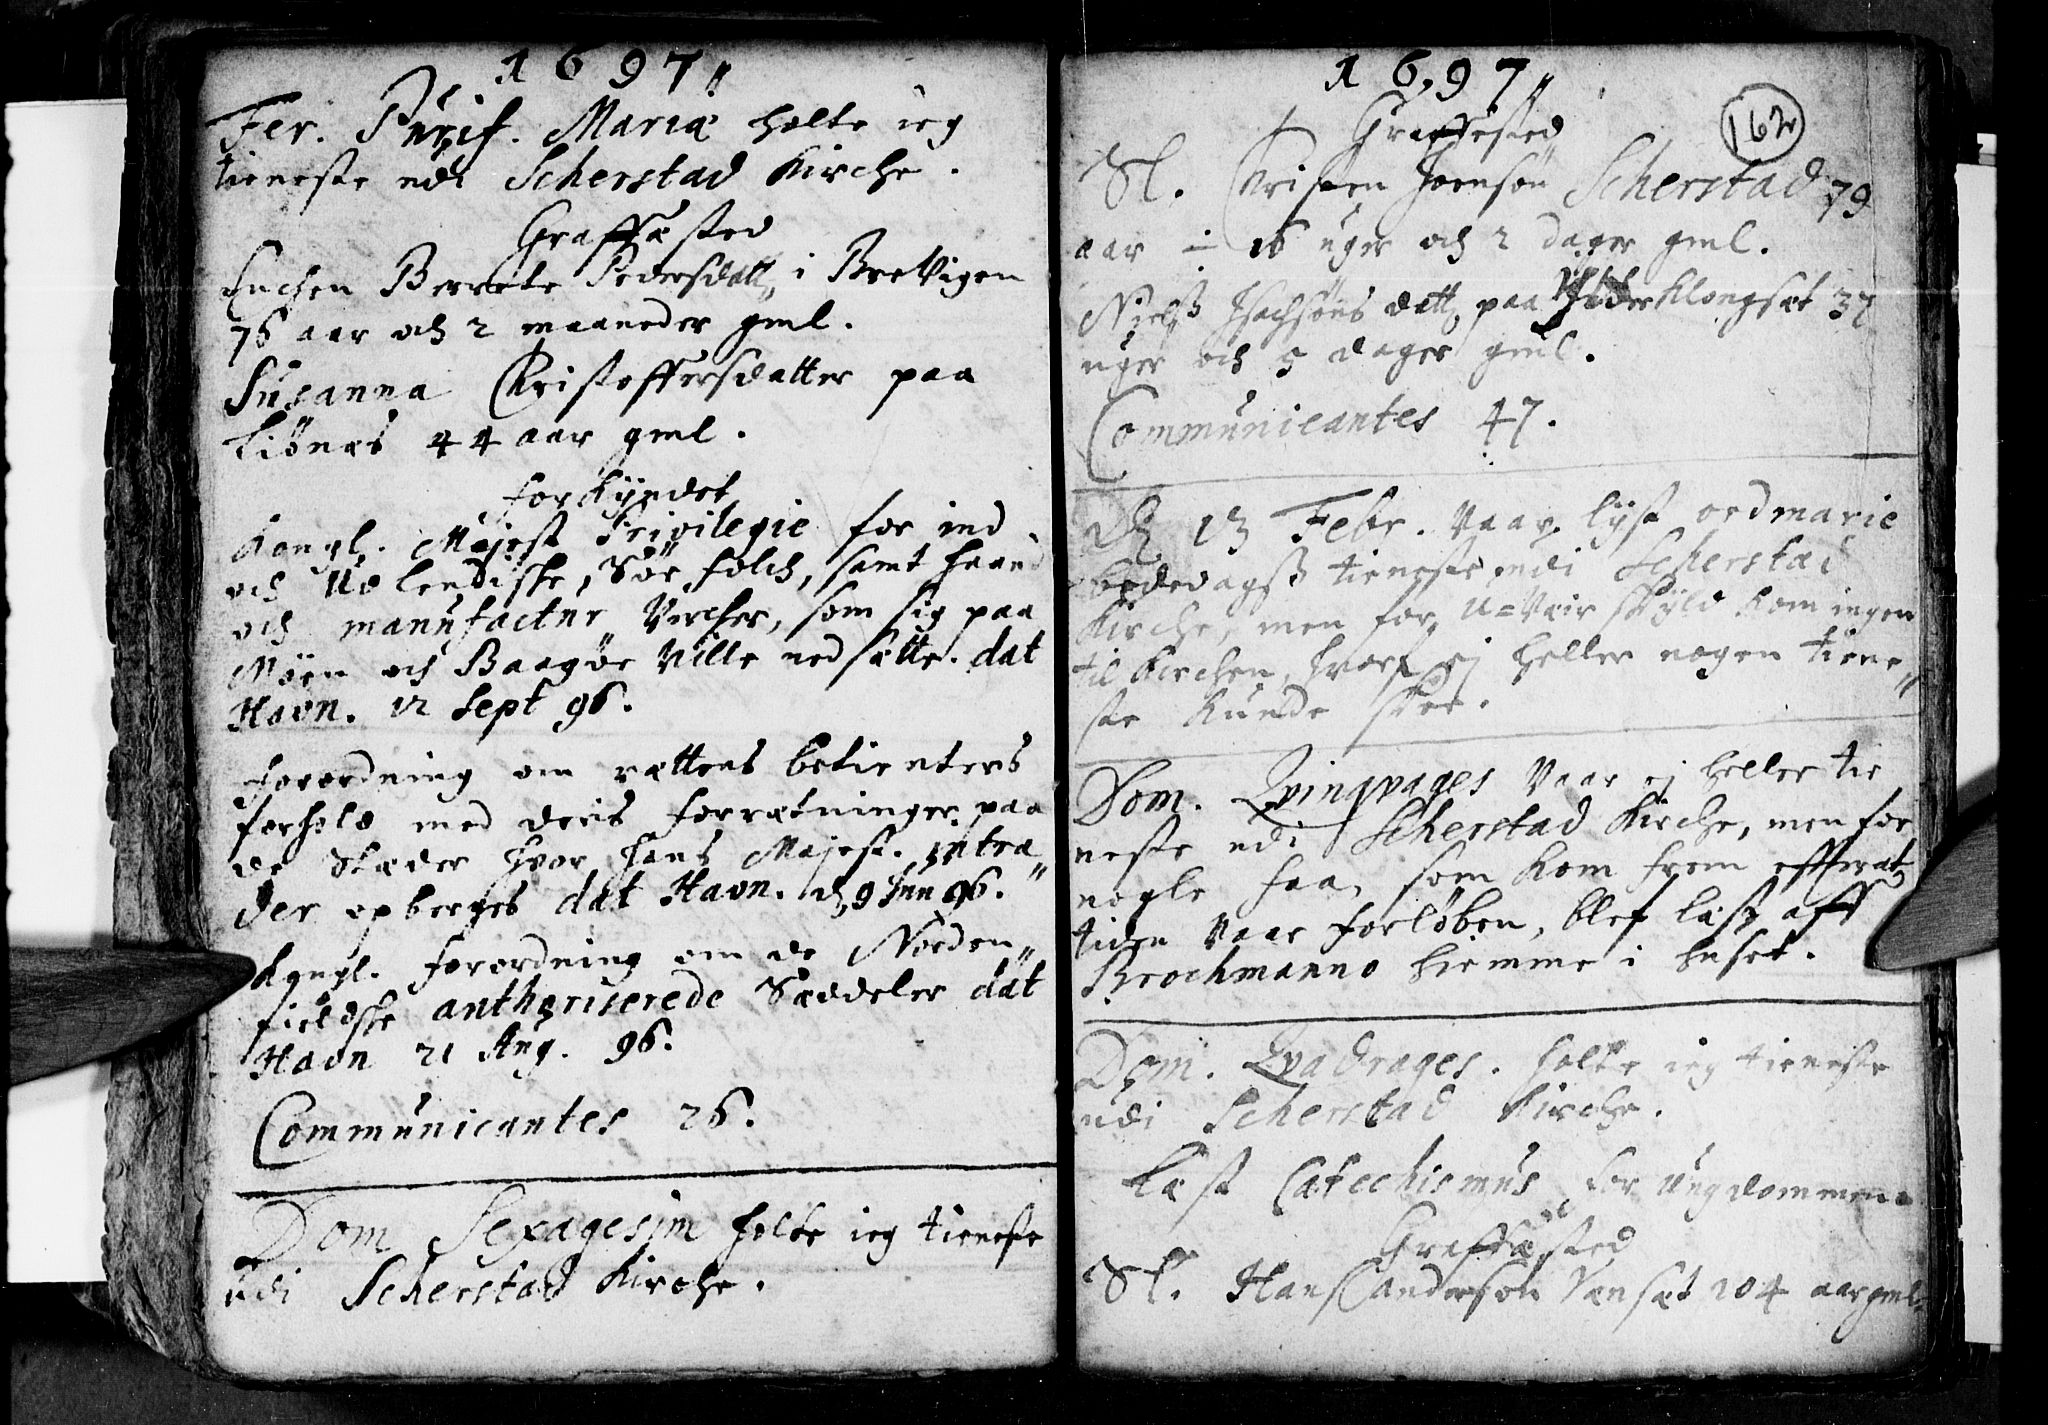 1697„
Fer. Purif. Mariæ holte ieg
tieneste udi Scherstad Kirche.
Graffæsted
Enchen Berrete Pedersdatt„ i Brevigen
76 aar och 2 maaneder gml.
Susanna Christoffersdatter paa
Liönæs 44 aar gml.
forkyndet
Kongl. Majest Privilegie for ind
och Udlendiske, Sör folch, samt haand
och manufactur Vercher, som sig paa
Möen och Baagöe Ville nedsætte. dat
Havn. 12 Sept 96.
forordning om rættens betienters
forhold med deris forrætninger paa
de Stæder hvor hans Majest. intra„
der opberges dat Havn. d, 9 Jun 96.
Kongl. forordning om de Norden„
fieldske authoriserede Sæddeler dat
Havn 21 Aug. 96.
Communicantes 26.
Dom Sexagesim holte ieg tieneste
udi Scherstad Kirche.
1697„
162
Graffæsted
Sl. Christen Joensön Scherstad 79
aar ÷ 16 uger och 2 dager gml.
Niels Isachsöns datt, paa Yttder Klongsæt 37
uger och 5 dager gml.
Communicantes 47.
D, 13 Febr. Vaar lyst ordinarie
bededags tieneste udi Scherstad
Kirche, men for U=Vær skyld kom ingen
til Kirchen, hvorf, ej heller nogen tiene„
ste kunde skee.
Dom. Qvinqvages Vaar ej heller tie
neste udi Scherstad Kirche, men for
nogle faa, som kom frem effterat
tiden Vaar forlöben, blef læst aff
Brochmanno hiemme i huset.
Dom. Qvadrages. holte ieg tieneste
udi Scherstad Kirche.
Læst Catechismus for Ungdommen.
Graffæsted
Sl. Hans Andersön Vensæt 104 aar gml.